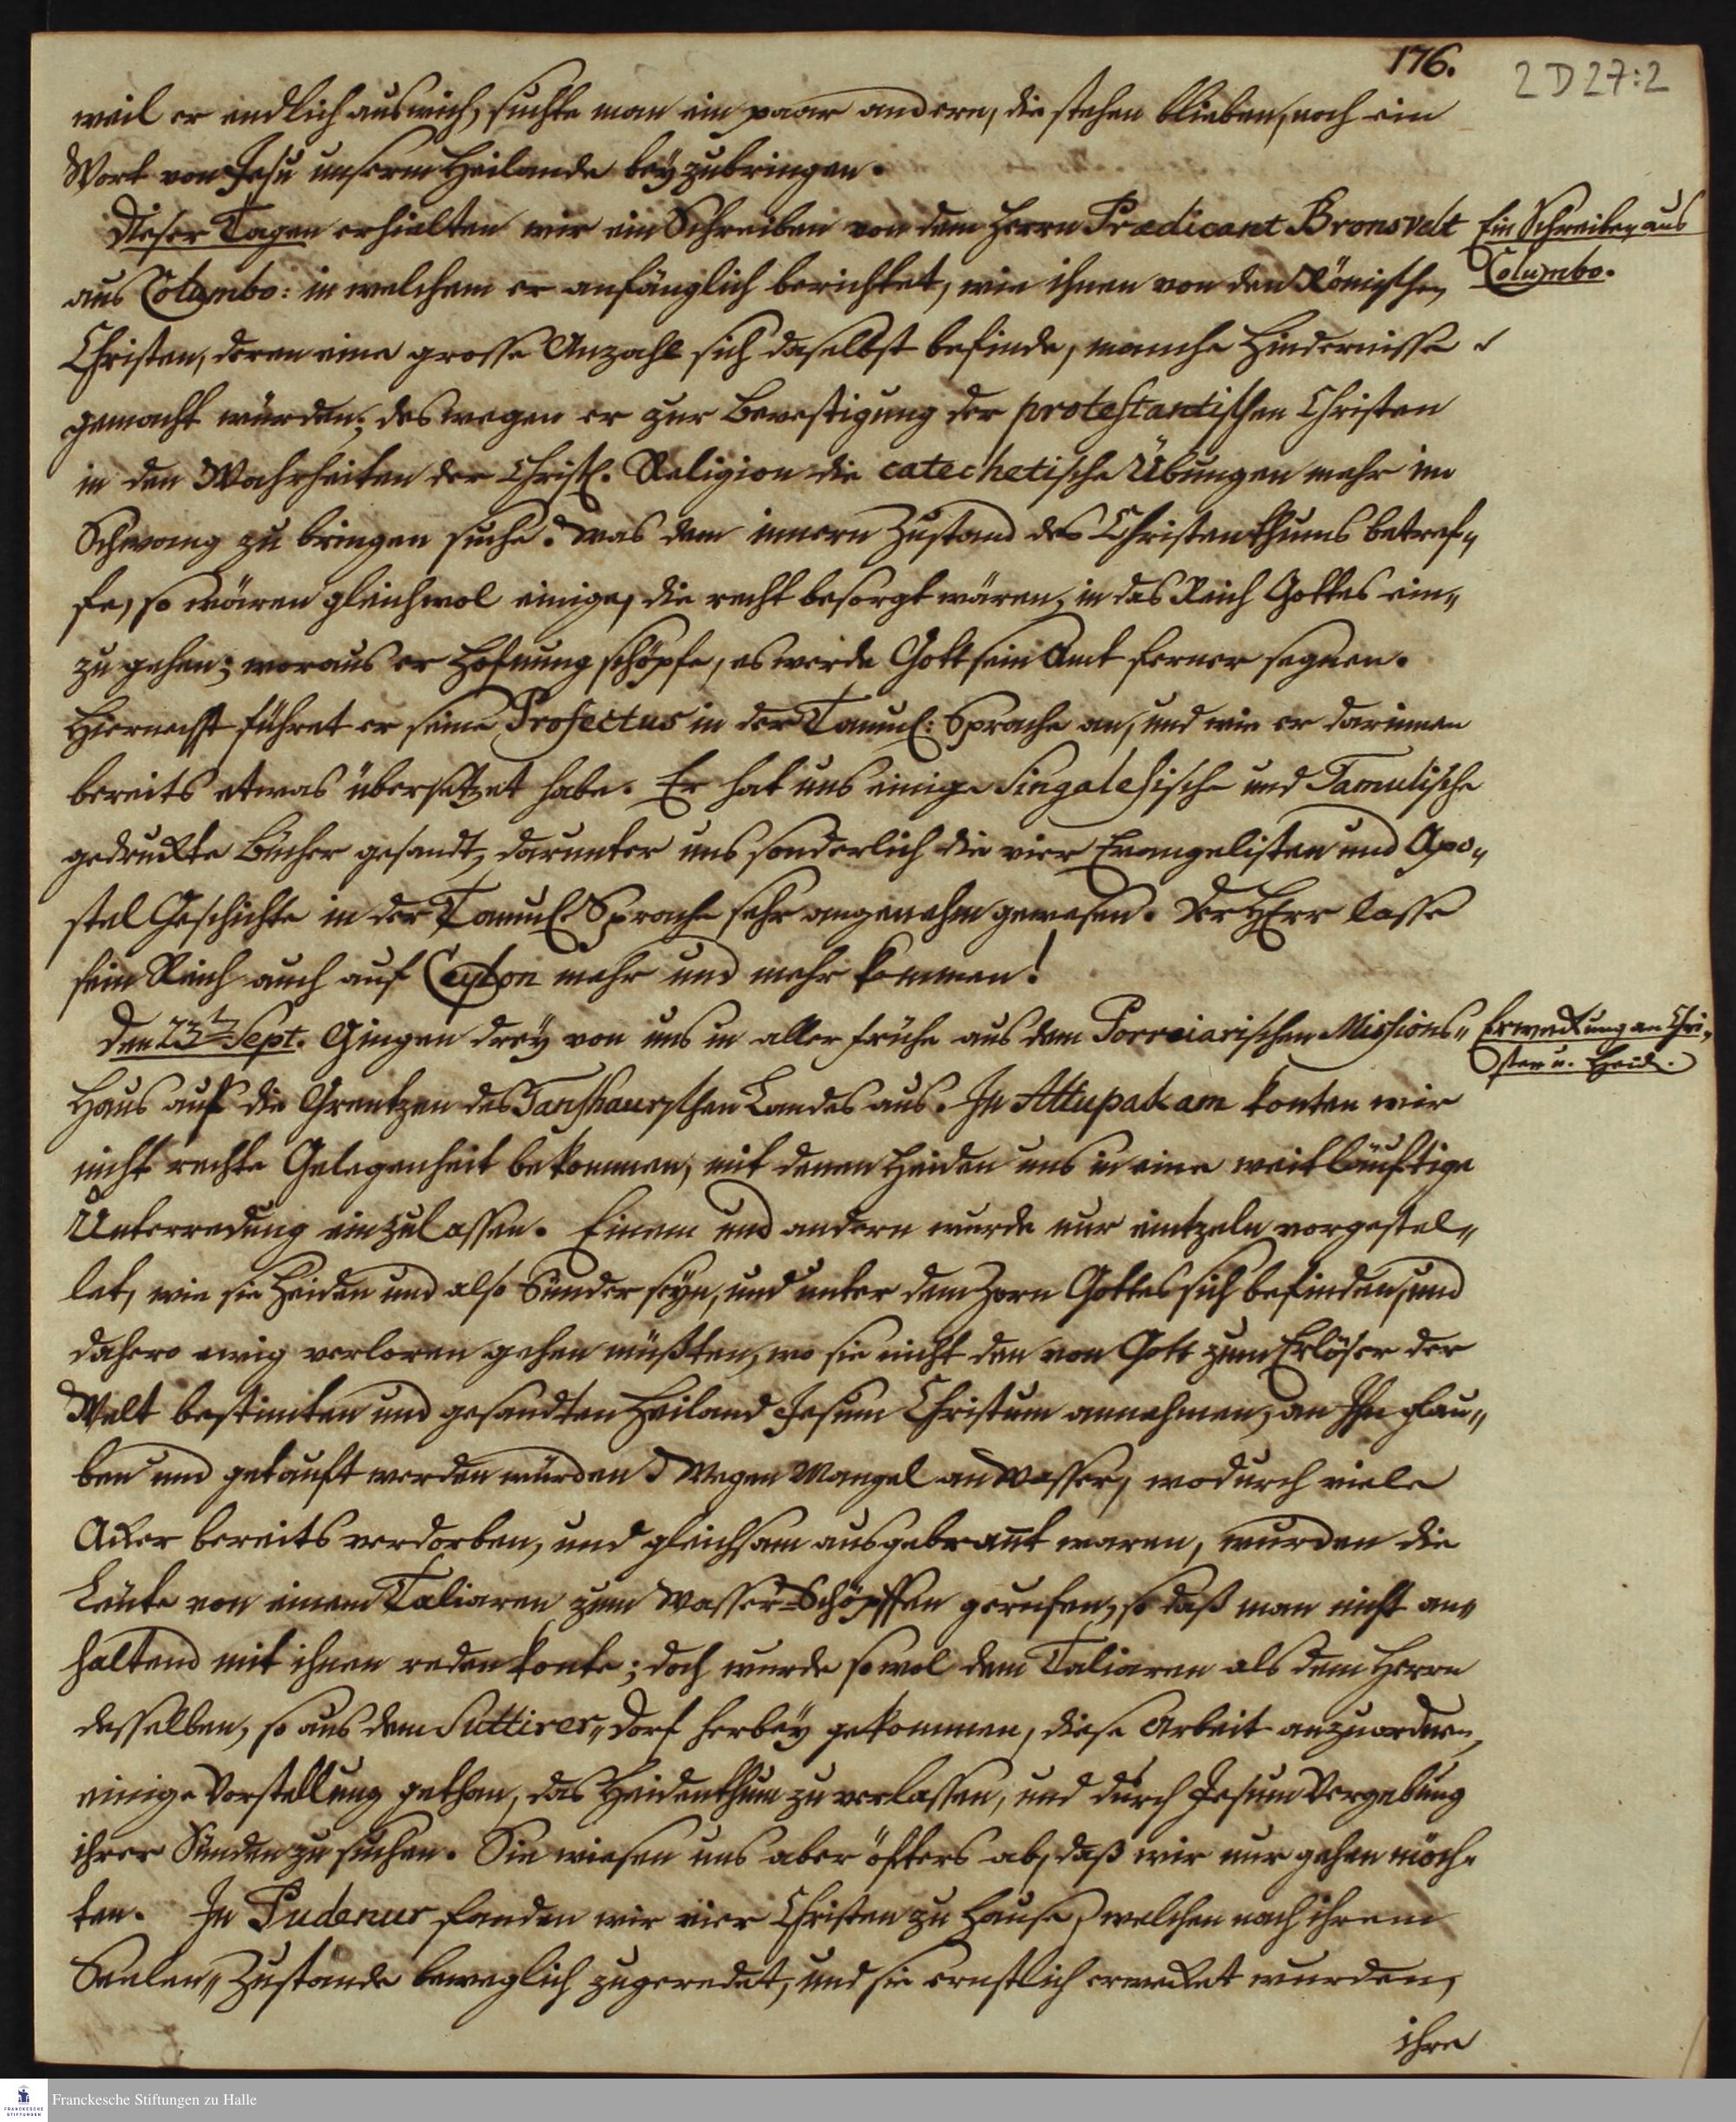 176.
2 D 27:2
weil er endlich auswich, suchte man ein paar andern, die stehen blieben, noch ein
Wort von Jesu unserm Heilande beyzubringen.
Dieser Tagen erhielten wir ein Schreiben von dem Herrn Prædicant Bronsveldt
Ein Schreiben aus
Columbo.
aus Columbo: in welchem er anfänglich berichtet, wie ihnen von den Römischen
Christen, deren eine grosse Anzahl sich daselbst befinde, manche Hindernisse
gemacht würden; deswegen er zur Bevestigung der protestantischen Christen
in den Wahrheiten der Christl. Religion die catechetische Übungen mehr im
Schwang zu bringen suche. Was den innern Zustand des Christenthums betref„
fe, so wären gleichwol einige, die recht besorgt wären, in das Reich Gottes ein„
zu gehen; woraus er Hofnung schöpfe, es werde Gott sein Amt ferner segnen.
Hiernechst führet er seine Profectus in der Tamul: Sprache an, und wie er darinnen
bereits etwas übersetzet habe. Er hat uns einige Singalesische und Tamulische
gedruckte Bücher gesandt, darunter uns sonderlich die vier Evangelisten und Apo„
stel Geschichte in der Tamul. Sprache sehr angenehm gewesen. Der HErr lasse
sein Reich auch auf Ceylon mehr und mehr kommen!
Den 23ten Sept. Gingen drey von uns in aller frühe aus dem Porreiarischen Missions„
Erweckung an Chri„
sten u. Heid.
Haus auf die Grentzen des Tanshaurischen Landes aus. In Attupakam konten wir
nicht rechte Gelegenheit bekommen, mit denen Heiden uns in eine weitläuftige
Unterredung einzulassen. Einem und andern wurde nur eintzeln vorgestel„
let, wie sie Heiden und also Sünder seyn, und unter dem Zorn Gottes sich befinden, und
dahero ewig verloren gehen müßten, wo sie nicht den von Gott zum Erlöser der
Welt bestimten und gesandten Heiland Jesum Christum annehmen, an Ihn glau„
ben und getauft werden würden. Wegen Mangel an Wasser, wodurch viele
Äcker bereits verdorben, und gleichsam ausgebrant waren, wurden die
Leute von einem Taliaren zum Wasser-Schöpffen gerufen, so daß man nicht an„
haltend mit ihnen reden konte; doch wurde sowol dem Taliaren als dem Herrn
desselben, so aus dem Suttirer„dorf herbey gekommen, diese Arbeit anzuordnen,
einige Vorstellung gethan, das Heidenthum zu verlassen, und durch Jesum Vergebung
ihrer Sünden zu suchen. Sie wiesen uns aber öfters ab, daß wir nur gehen möch„
ten. In Pudenur fanden wir vier Christen zu Hause, welchen nach ihrem
Seelen„Zustande beweglich zugeredet, und sie ernstlich erwecket wurden,
ihre
Franckesche Stiftungen zu Halle
FRANCKESCHE
STIFTUNGEN